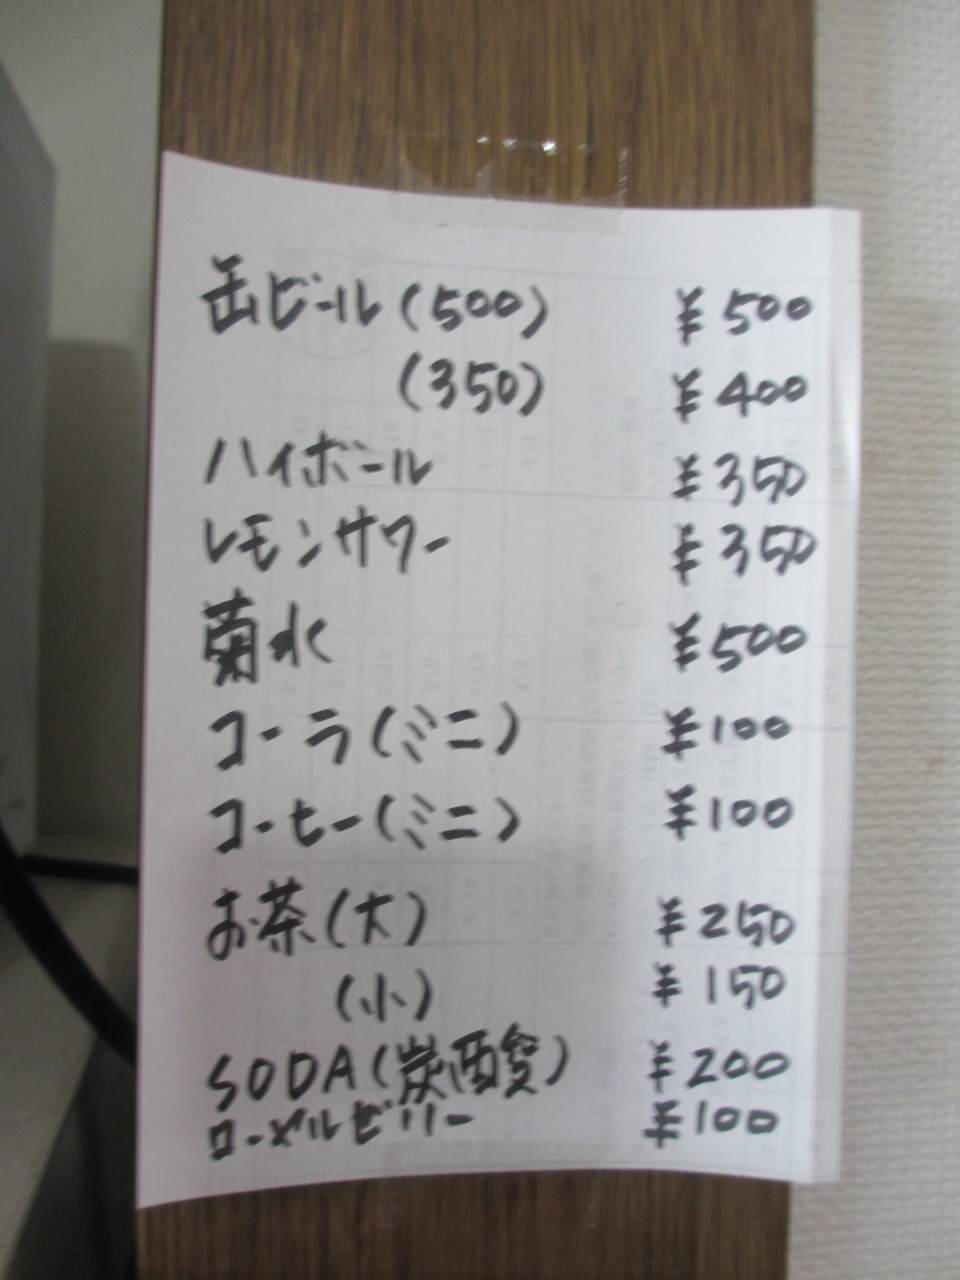 缶ビール(500) ¥500
(350) ¥400
ハイボール ¥350
レモンサワー ¥350
菊水 ¥500
コーラ(ミニ) ¥100
コーヒー(ミニ) ¥100
お茶(大) ¥250
(小) ¥150
SODA(炭酸) ¥200
ローズルビリー ¥100